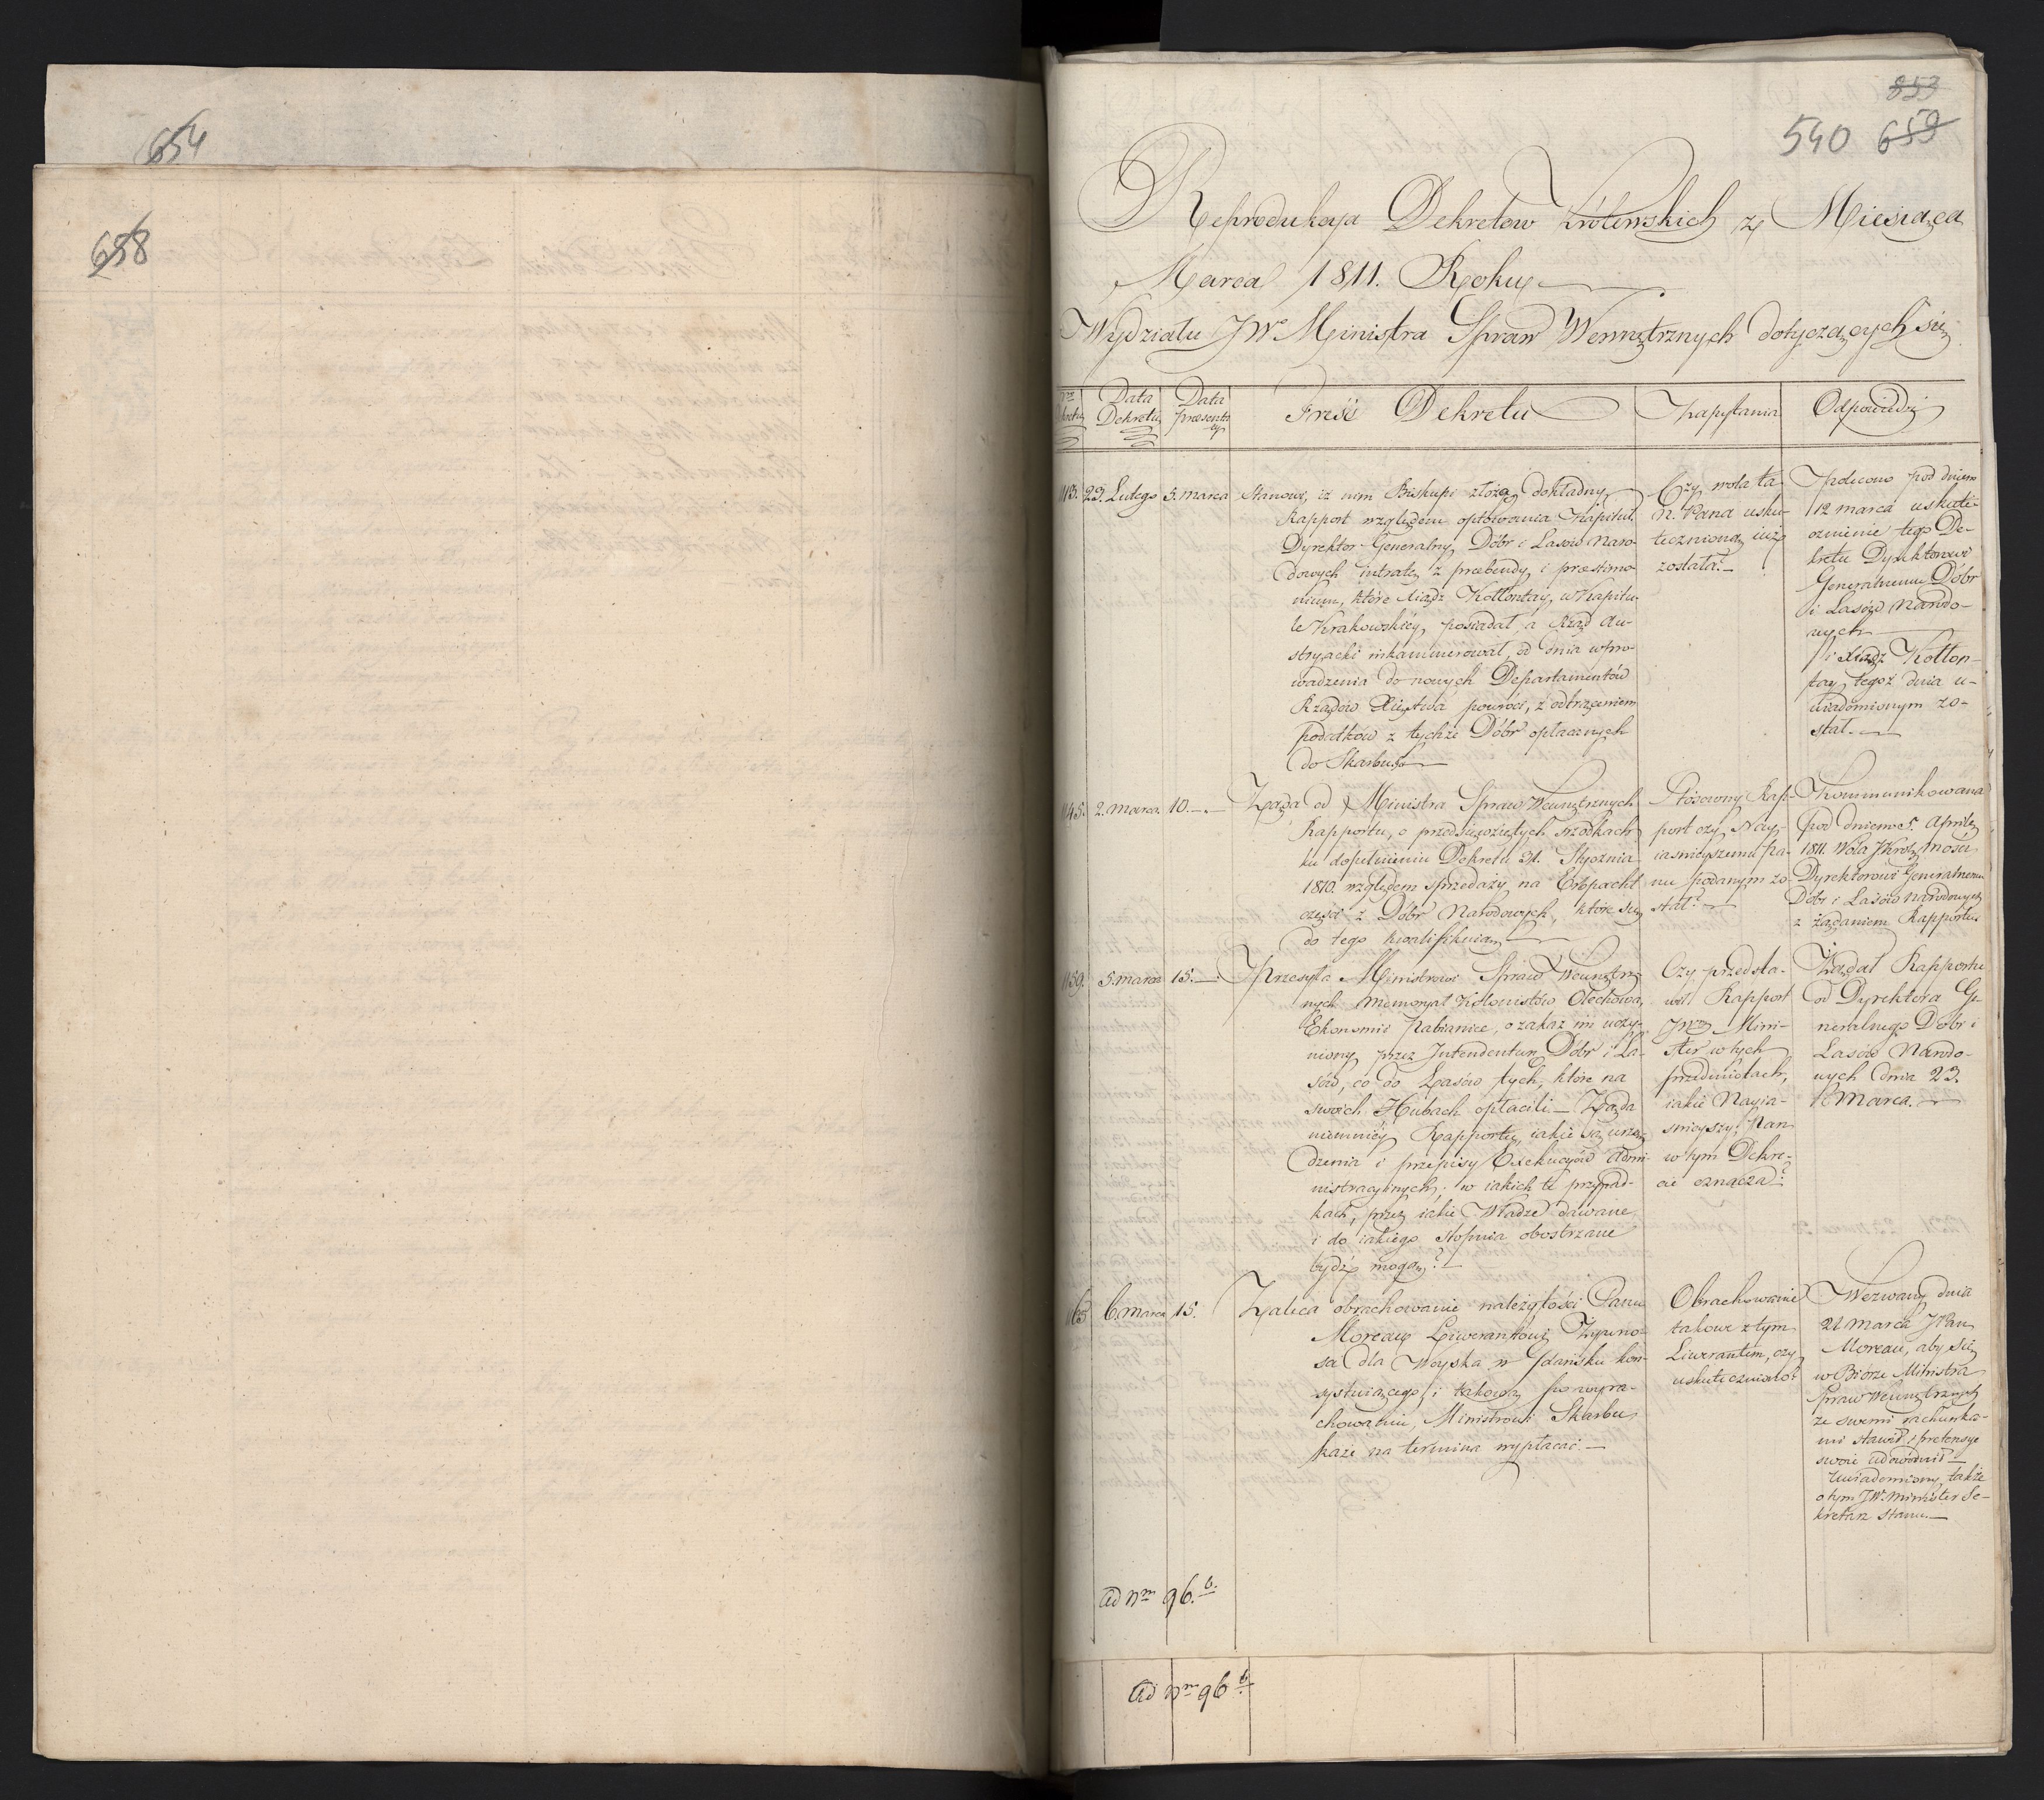 654
658
853
540 659
Reprodukcya Dekretow Królewskich z Miesiąca
Marca 1811. Roku
Wydziału JWo Ministra Spraw Wewnętrznych dotyczących się
Data
Dekretu
Data
præsenta
cyi
Treść Dekretu
Zapytania
Odpowiedzi
1113. 23. Lutego 5. marca
Stanowi, iż nim Biskupi złożą dokładny
Rapport względem optowania Kapituł.
Dyrektor Generalny Dóbr i Lasów Naro-
dowych intratę z præbendy i præstimo-
nium, które Xiądz Kołłontay, w Kapitu-
le Krakowskiey posiadał, a Rząd Au-
stryacki inkammerował, od dnia wpro-
wadzenia do nowych Departamentów
Rządów Xięstwa powróci, z odtrąceniem
podatków z tychże Dóbr opłacanych
do Skarbu.
Czy wola ta
N. Pana usku-
teczniona iuż
została?
Zalecono pod dniem
12 marca uskute-
cznienie tego De-
kretu Dyrektorowi
Generalnemu Dóbr
i Lasów Narodo-
wych
i Xiądz Kołłon-
tay tegoż dnia u-
wiadomionym zo-
stał.
1145. 2. marca. 10.
Żąda od Ministra Spraw Wewnętrznych
Rapportu, o przedsięwziętych środkach
ku dopełnieniu Dekretu 31. Stycznia
1810. względem sprzedaży na Erbpacht
części z Dóbr Narodowych, które się
do tego kwalifikuią
Stósowny Rap-
port czy Nay-
iaśnieyszemu Pa-
nu podanym zo-
stał?
Kommunikowana
pod dniem 5. Aprila
1811. Wola JKrólę Mości
Dyrektorowi Generalnemu
Dóbr i Lasów Narodowych
z żądaniem Rapportu
1159. 5. marca 15.
Przesyła Ministrowi Spraw Wewnętrz-
nych Memoryał Kolonistów Olechowa,
Ekonomii Pabianice, o zakaz im uczy-
niony przez Intendenturę Dóbr i La-
sów, co do Lasów tych, które na
swoich Hubach opłacili. — Żąda
niemniéy Rapportu, iakie są urzą-
dzenia i przepisy Exekucyów Admi-
nistracyinych; w iakich te przypad-
kach, przez iakie Władze dawane
i do iakiego stopnia obostrzane
bydź mogą?
Czy przedsta-
wił Rapport
JW Mini-
ster w tych
przedmiotach,
iakie Nayia-
śnieyszy Pan
w tym Dekre-
cie oznacza?
Żądał Rapportu
od Dyrektora Ge-
neralnego Dóbr i
Lasów Narodo-
wych dnia 23.
Marca.
1165 6. marca 15.
Zaleca obrachowanie należytości Panu
Moreau Liwerantowi Żywno-
ści dla Woyska w Gdańsku kon-
systuiącego, i takową po wyra-
chowaniu, Ministrowi Skarbu
każe na termina wypłacać.
Obrachowanie
takowe z tym
Liwerantem, czy
uskuteczniono?
Wezwany dnia
21 marca JPan
Moreau, aby się
w Biórze Ministra
Spraw Wewnętrznych
ze swemi rachunka-
mi stawił i pretensye
swoie udowodnił
Zawiadomiony także
o tym JW. Minister Se-
kretarz Stanu.
Ad Nm 96. b.
Ad Nm 96 b.